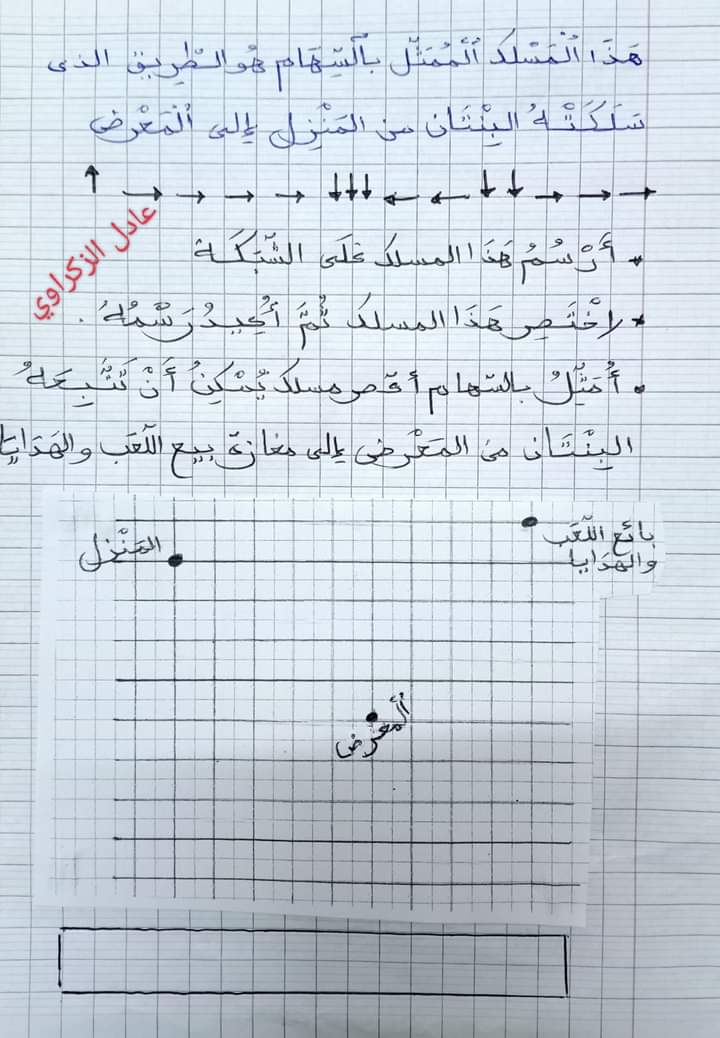 هَذَا الْمَسْلك الْمُمَثّل بالسِّهَام هُو الطّرِيق الذي
سَلَكَتْهُ البِنْتَان من المَنْزِل إلى الْمَعْرض
↑ → → → → ↓↓↓ ← ← ↓ ↓ → → →
عادل الزكراوي
• أَرْسُمُ هَذَا المسلك عَلَى الشّبَكَة
• لاخْتَصِر هَذَا المسلك ثُمَّ أُعِيدُ رَسْمَهُ .
• أُمَثِّلُ بالسّهام أقصر مسلك يُمْكِنُ أَنْ تَتَّبِعَهُ
البِنْتَان من المَعْرض إلى مغازة بيع اللّعَب والهَدَايَا
بائع اللّعَب
والهدَايا
المَنْزل
ألمعْرض